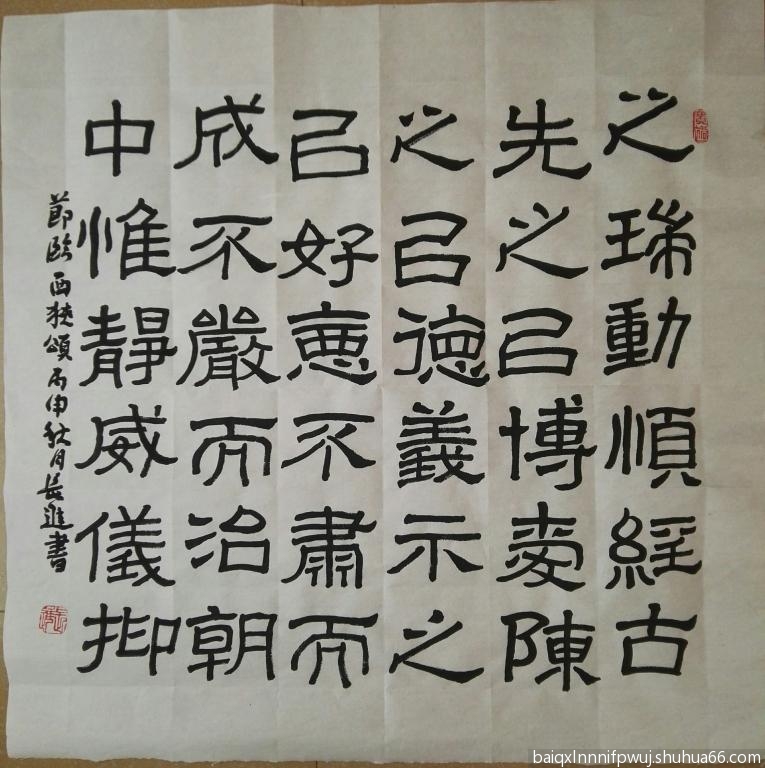 之瑞動順經古
先之㠯博愛陳
之㠯德義示之
㠯好惡不肅而
成不嚴而治朝
中惟靜威儀抑
節臨西狹頌丙申秋月長進書
baiqxlnnnifpwuj.shuhua66.com